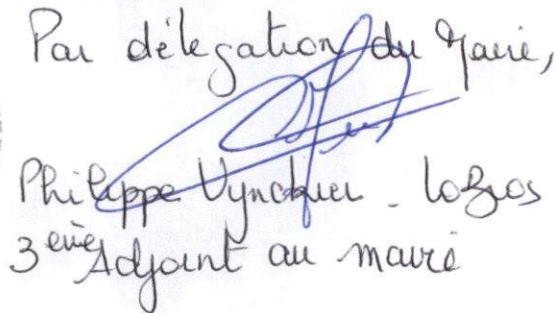 Par délégation du Maire,
Philippe Vynckier - Lobros
3ème Adjoint au maire